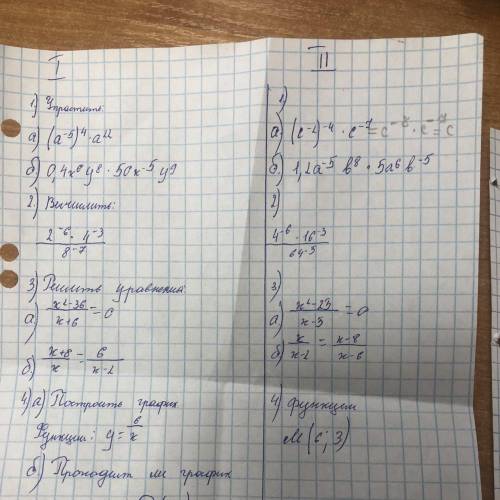 I
1) Упростить:
а) (a⁻⁵)⁴ · a²²
б) 0,4x⁶y⁸ · 50x⁻⁵y⁹
2) Вычислить:
2⁻⁶ · 4⁻³ / 8⁻⁷
3) Решить уравнения
а) x²-36 / x+6 = 0
б) x+8 / x = 6 / x-2
4) а) Построить график
функции: y = 6/x
б) Проходит ли график
II
1)
а) (c⁻²)⁻⁴ · c⁻⁷ = c⁻⁸ · c⁻⁷ = c
б) 1,2a⁻⁵ b⁸ · 5a⁶ b⁻⁵
2)
4⁻⁶ · 16⁻³ / 64⁻⁵
3)
а) x²-25 / x-5 = 0
б) x / x-2 = x-8 / x-6
4) функции
M(6; 3)